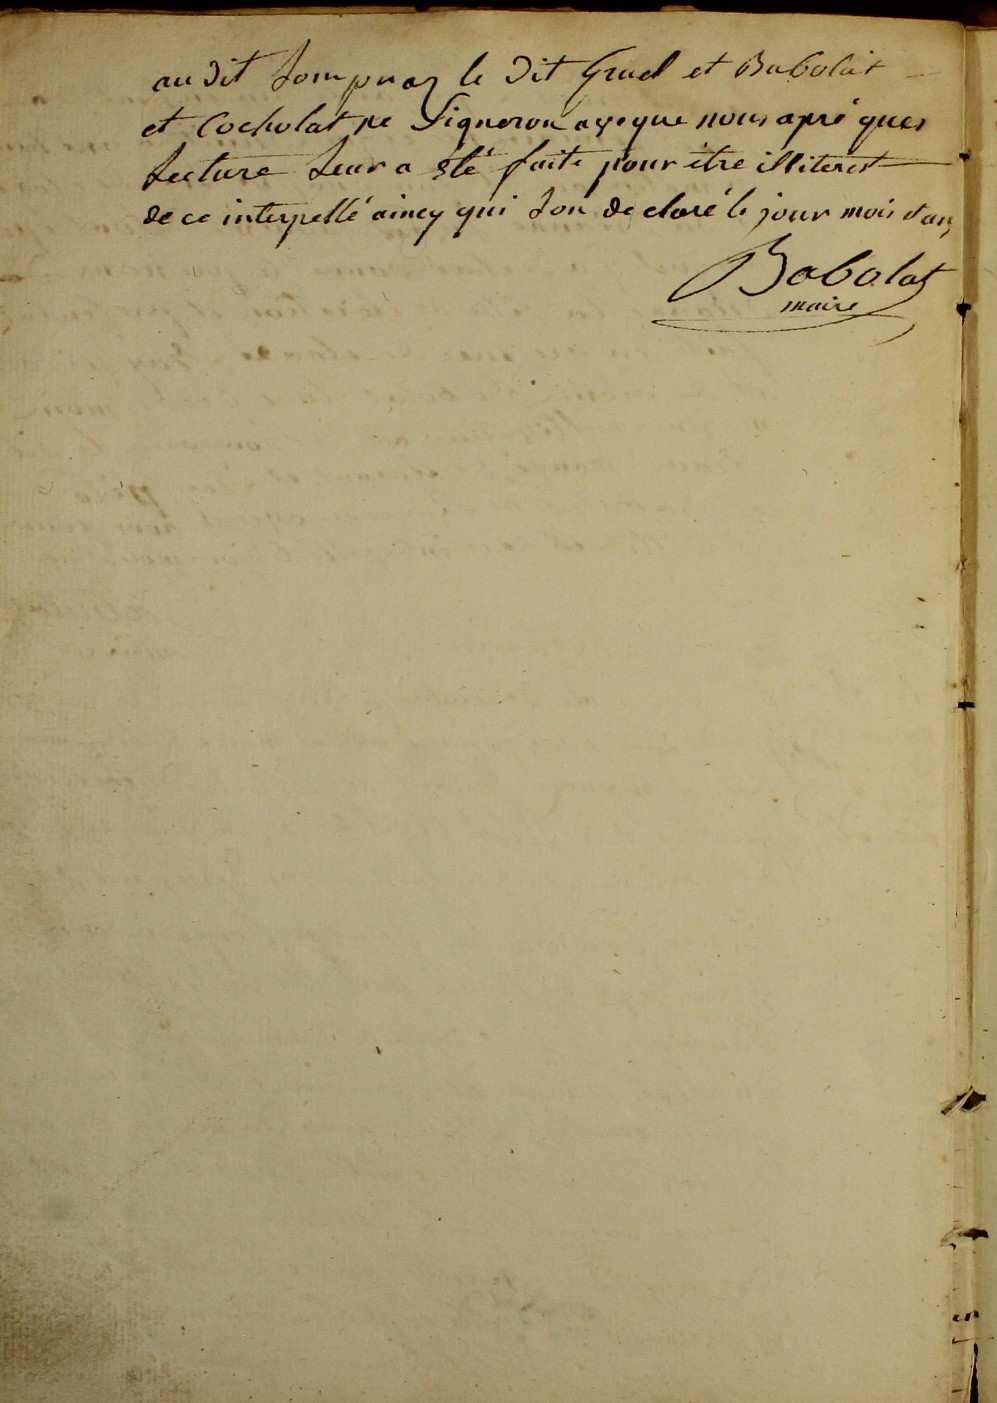 au dit Sompraz le dit Gruel et Babolat
et Cocholat ne Signeron aveque nous apré ques
Lecture Leur a été faite pour être illiterest
de ce interpellé aincy qui Lon declaré le jour mois dan
Babolat
maire